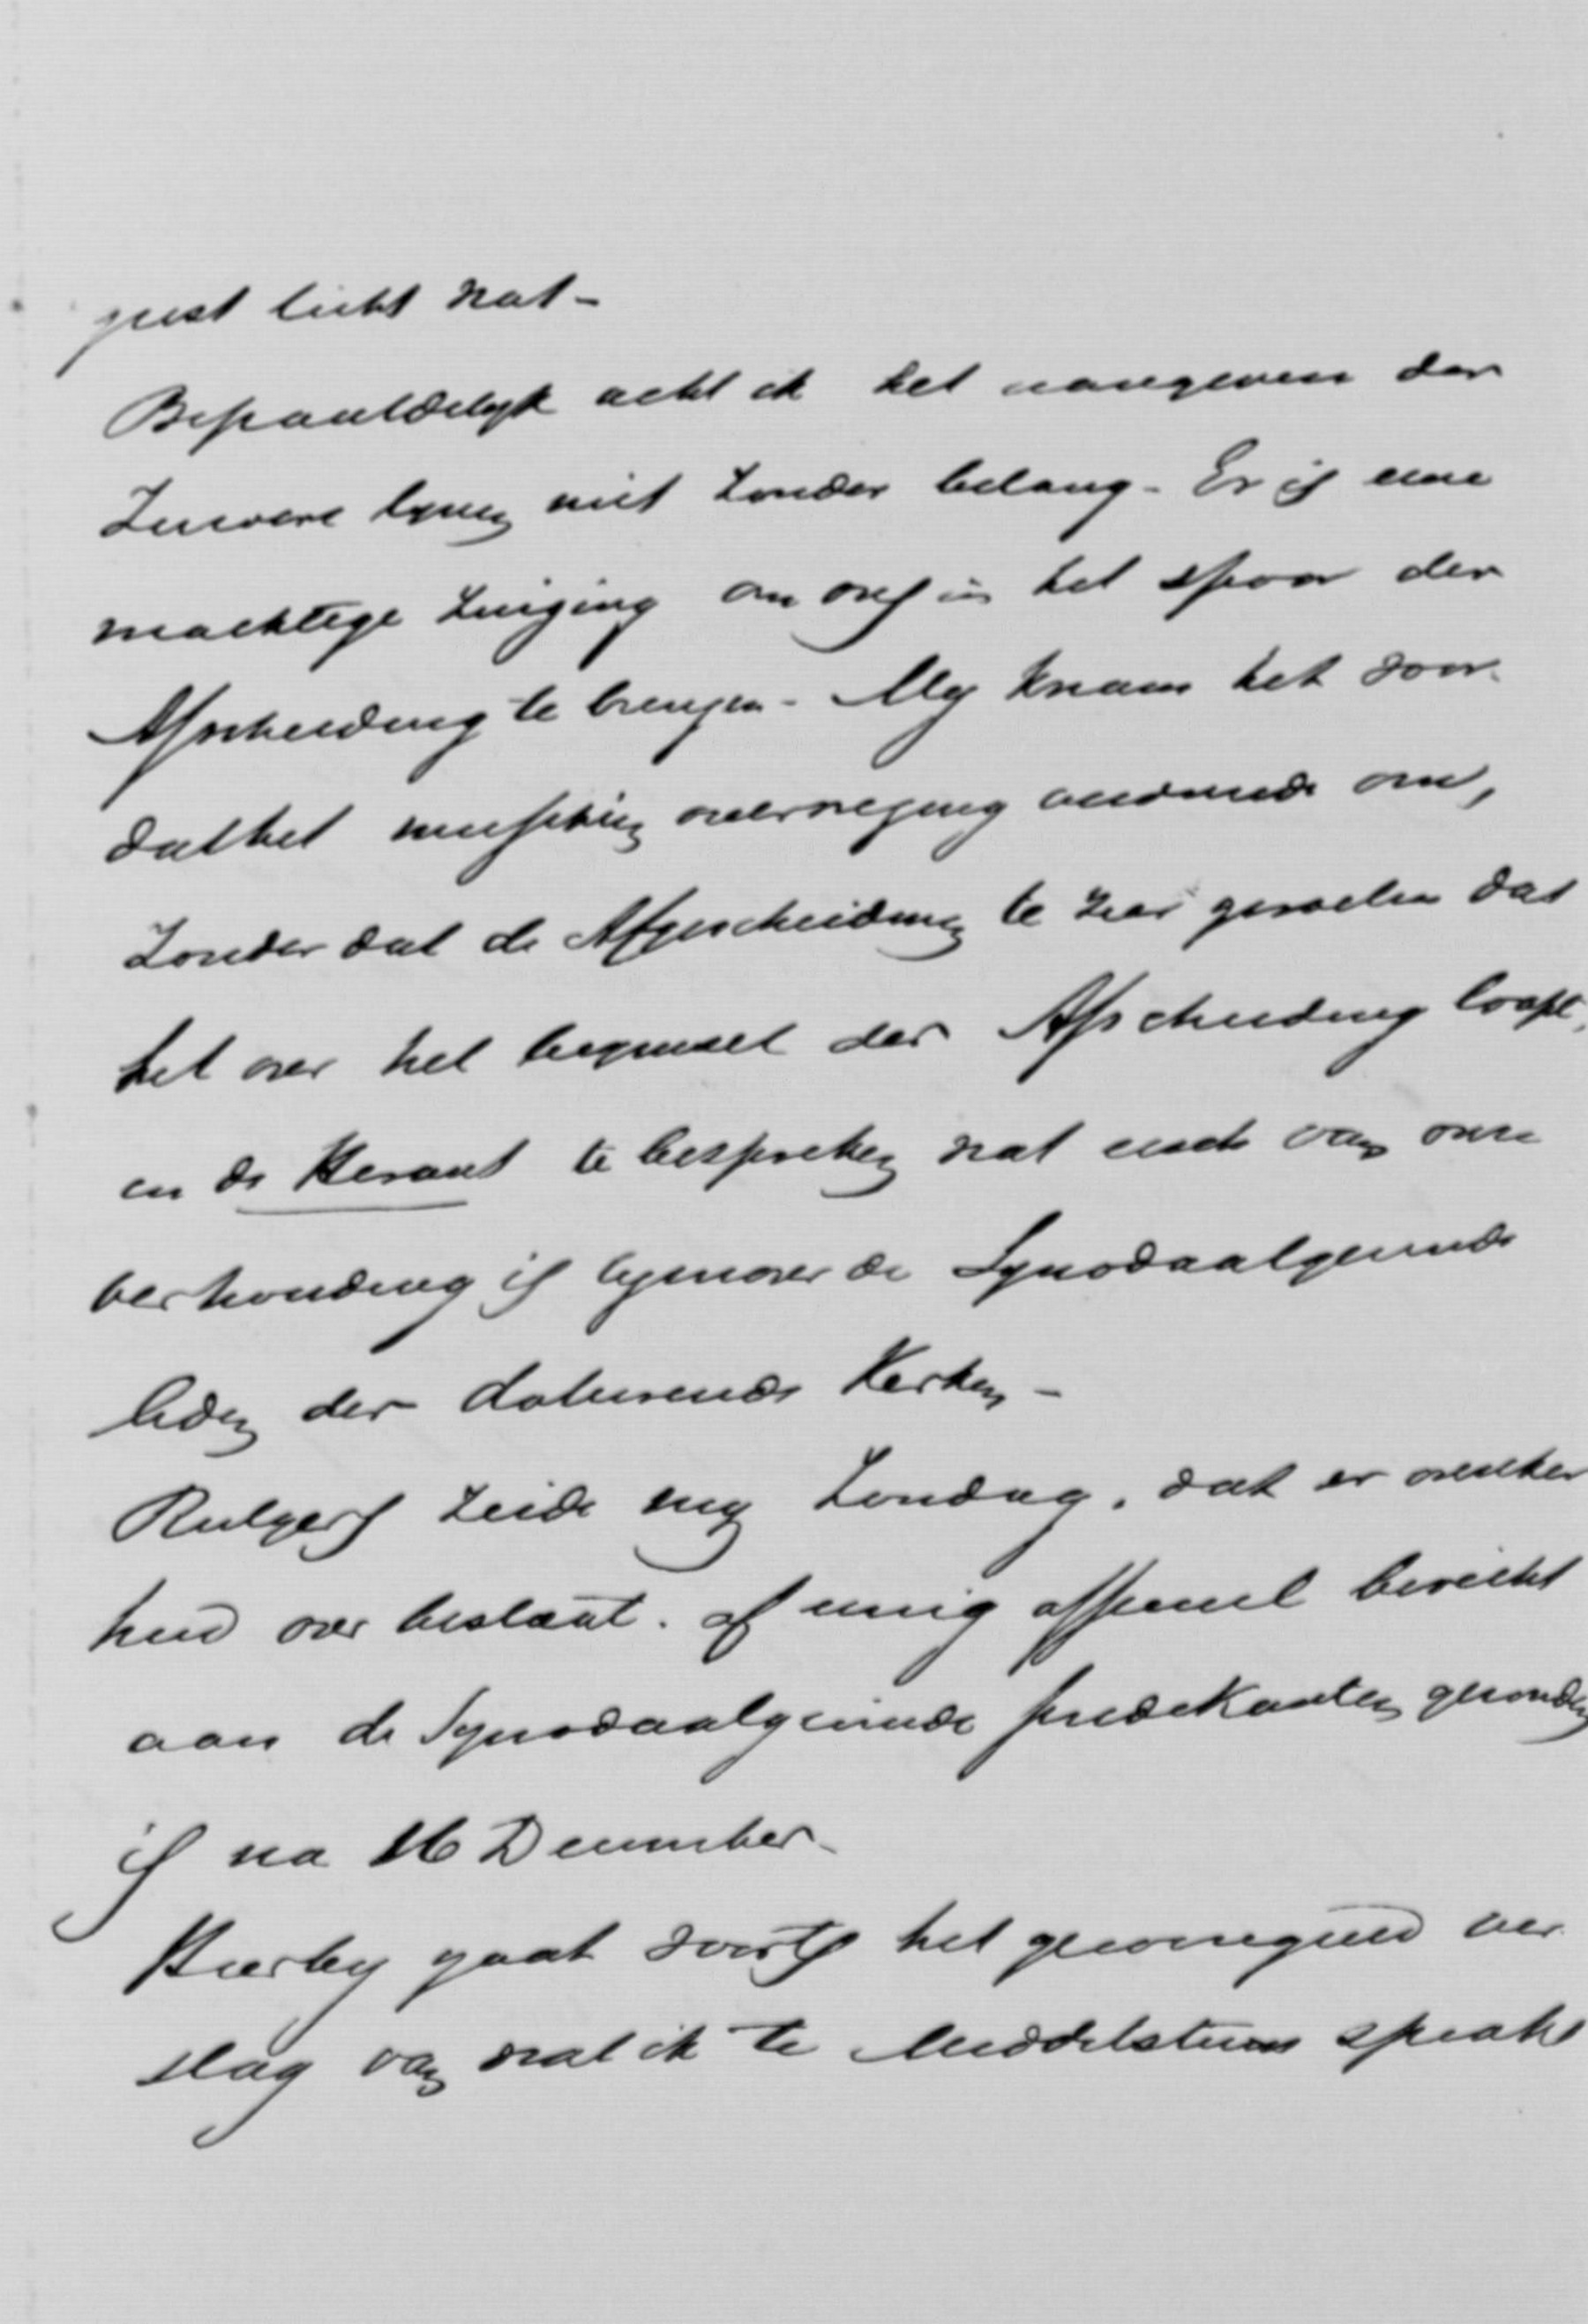 juist licht wat -
Bepaaldelyk acht ik het aangeven der
zuivere lynen niet zonder belang - Er is eene
machtige zuiging om ons in het spoor der
Afscheiding te brengen - My kwam het voor
dat het misschien overweging verdiende om,
zonder dat de Afgescheidenen te zeer gevoelen dat
het over het beginsel der Afscheiding loopt,
in de Heraut te bespreken wat onze
verhouding is tegenover de Synodaalgezinde
leden der doleerende Kerken -
Rutgers zeide my Zondag, dat er onzeker
heid over bestaat. of eenig officieel bericht
aan de Synodaalgezinde predikanten gezonden
is na 16 December -
Hierby gaat voorts het gecorrigeerd ver
slag van wat ik te Middelstum sprak